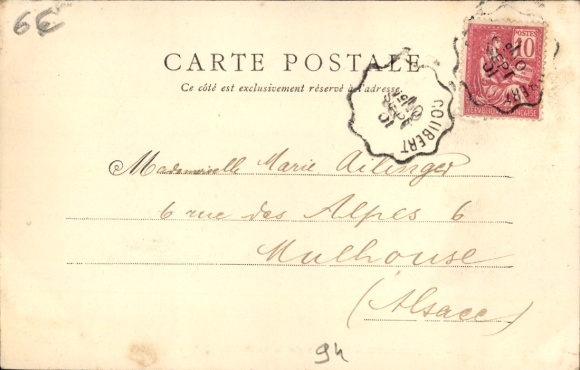 6€
CARTE POSTALE
Ce côté est exclusivement réservé à l'adresse
POSTES
10
COUBERT
10
SEPT
Mademoiselle Marie Ailinger
6 rue des Alpes 6
Mulhouse
(Alsace)
94